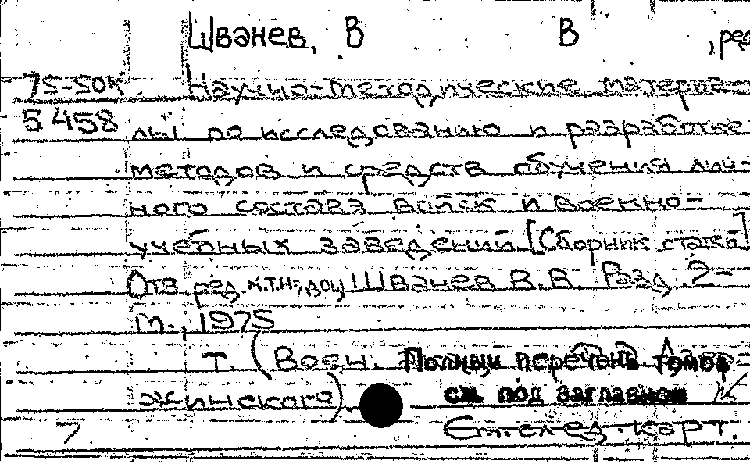 Шванев, В В , ред
75-50к Научно-методические материа-
5458 лы по исследованию и разработке
методов и средств обучения лич-
ного состава войск и военно-
учебных заведений [Сборник статей]
Отв ред. к.т.н., доц Шванев В.В. Разд. 2-
М., 1975
т. (Воен. Полный перечень томов
жинского) см. под заглавием
См. след. карт.
7